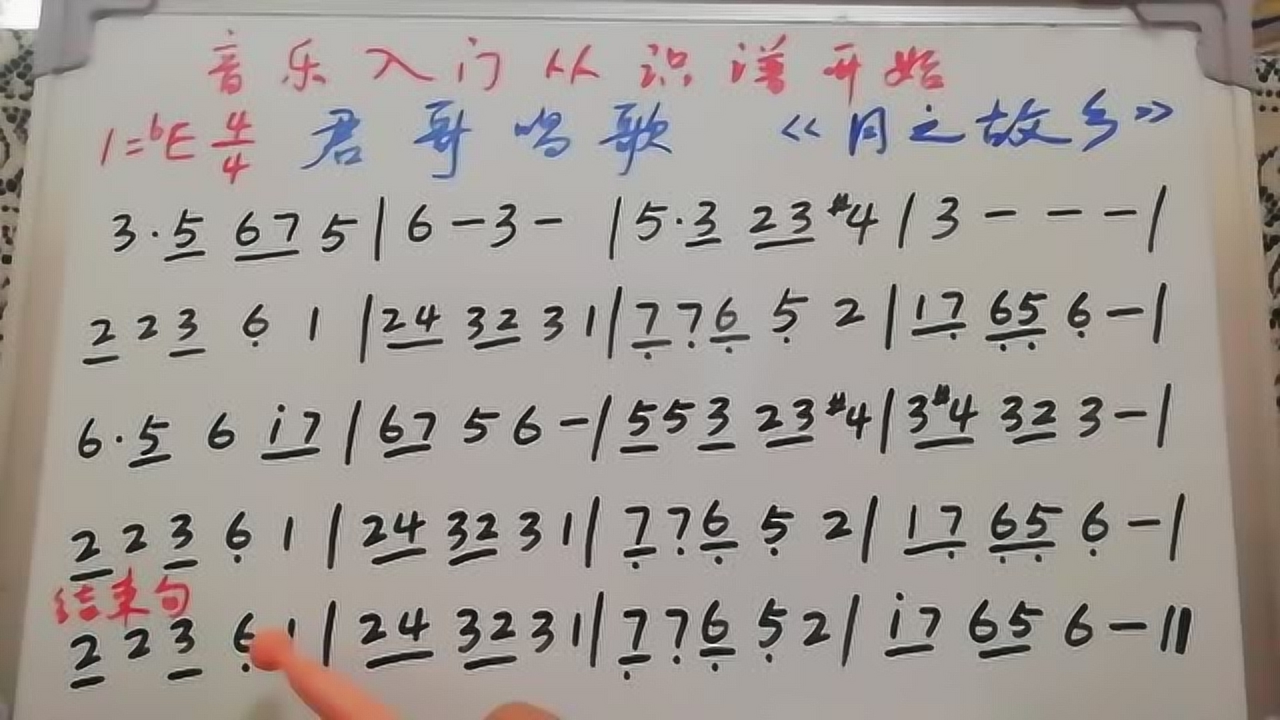 音乐入门从识谱开始
1=♭E 4/4 君哥唱歌 《月之故乡》
3·5̲ 6̲7̲ 5 | 6 – 3 – | 5·3̲ 2̲3̲ #4 | 3 – – – |
2̲ 2 3̲ 6̣ 1 | 2̲4̲ 3̲2̲ 3 1 | 7̲̣ 7̣ 6̲̣ 5̣ 2 | 1̲7̲̣ 6̲̣5̲̣ 6̣ – |
6·5̲ 6 i̲7̲ | 6̲7̲ 5 6 – | 5̲ 5 3̲ 2̲3̲ #4 | 3̲#4̲ 3̲2̲ 3 – |
2̲ 2 3̲ 6̣ 1 | 2̲4̲ 3̲2̲ 3 1 | 7̲̣ 7̣ 6̲̣ 5̣ 2 | 1̲7̲̣ 6̲̣5̲̣ 6̣ – |
结束句
2̲ 2 3̲ 6̣ 1 | 2̲4̲ 3̲2̲ 3 1 | 7̲̣ 7̣ 6̲̣ 5̣ 2 | i̲7̲ 6̲5̲ 6 – ‖